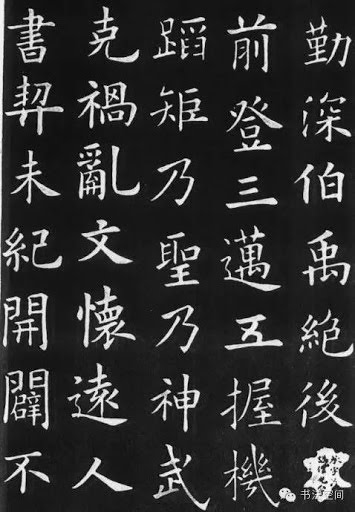 勤深伯禹絕後
前登三邁五握機
蹈矩乃聖乃神武
克禍亂文懷遠人
書契未紀開闢不
书法空间